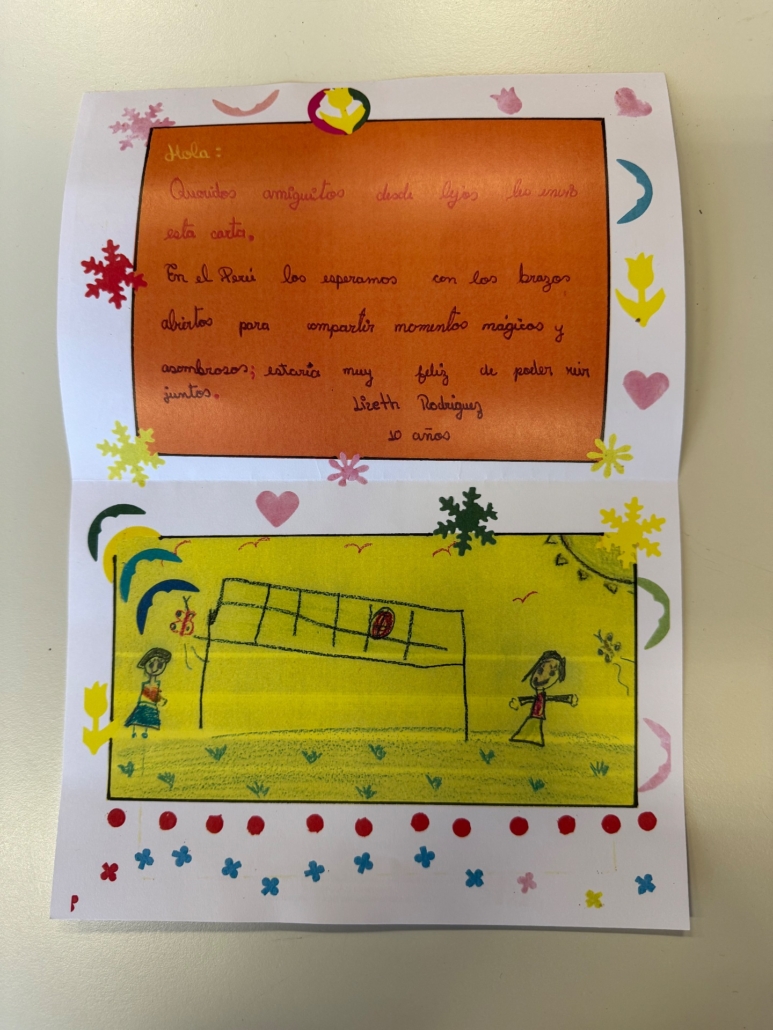 Hola:
Queridos amiguitos desde lejos les envio
esta carta.
En el Perú los esperamos con los brazos
abiertos para compartir momentos mágicos y
asombrosos; estaría muy feliz de poder reir
juntos.
Lizeth Rodriguez
10 años